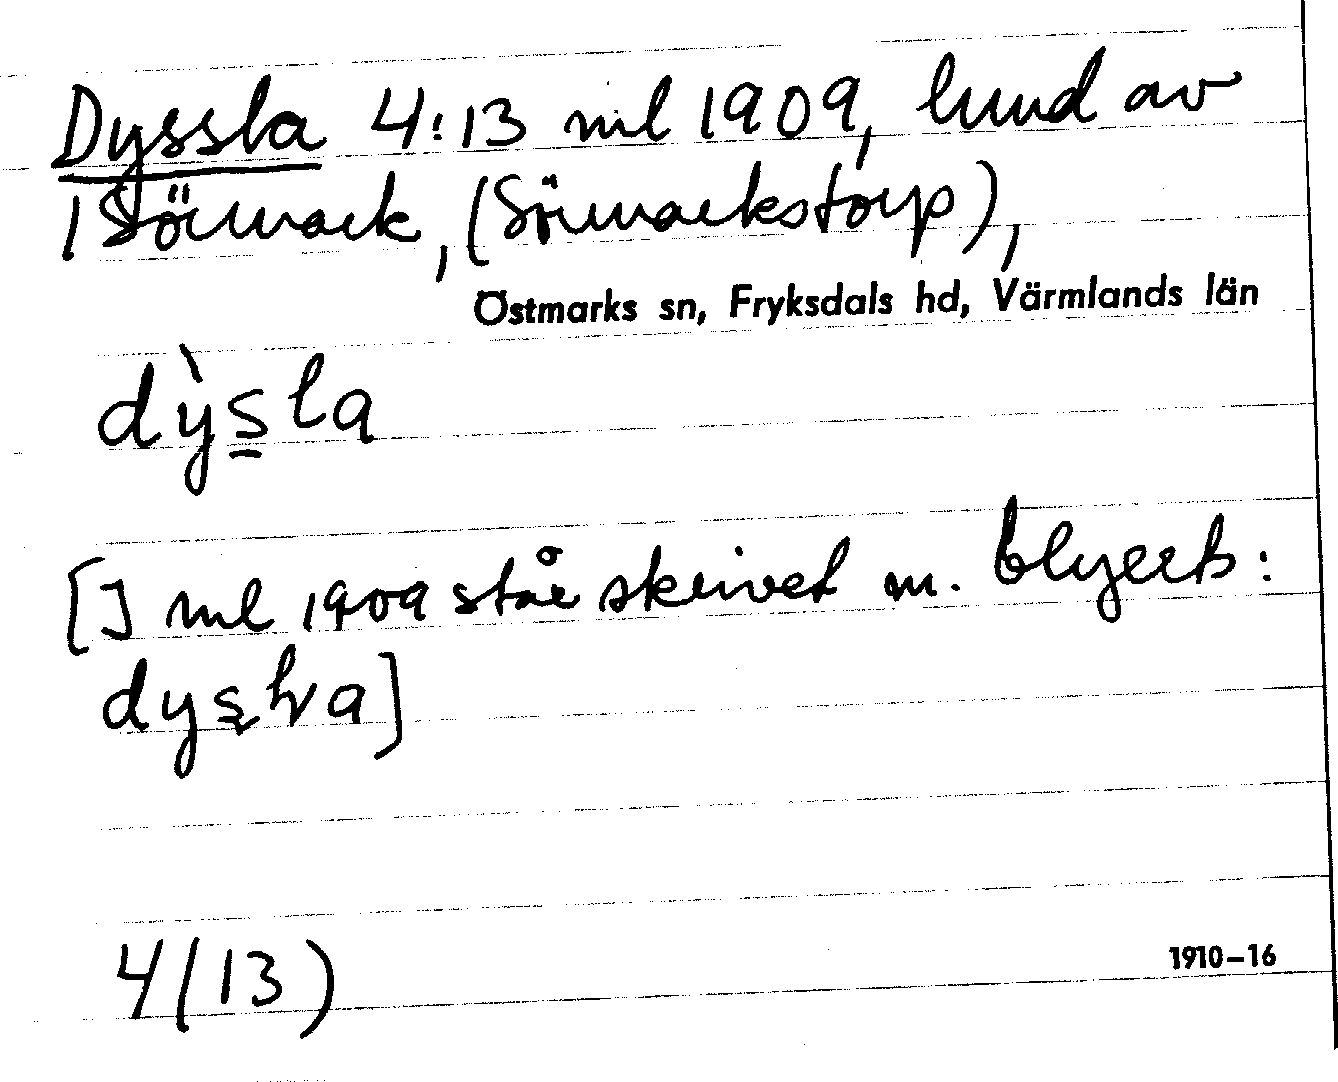 Dyssla 4:13 ml 1909, lund av
1 Sörmark, (Sörmarkstorp),
Östmarks sn, Fryksdals hd, Värmlands län
dỳs̲la
[I ml 1909 står skrivet m. blyerts:
dysla]
4(13)
1910–16